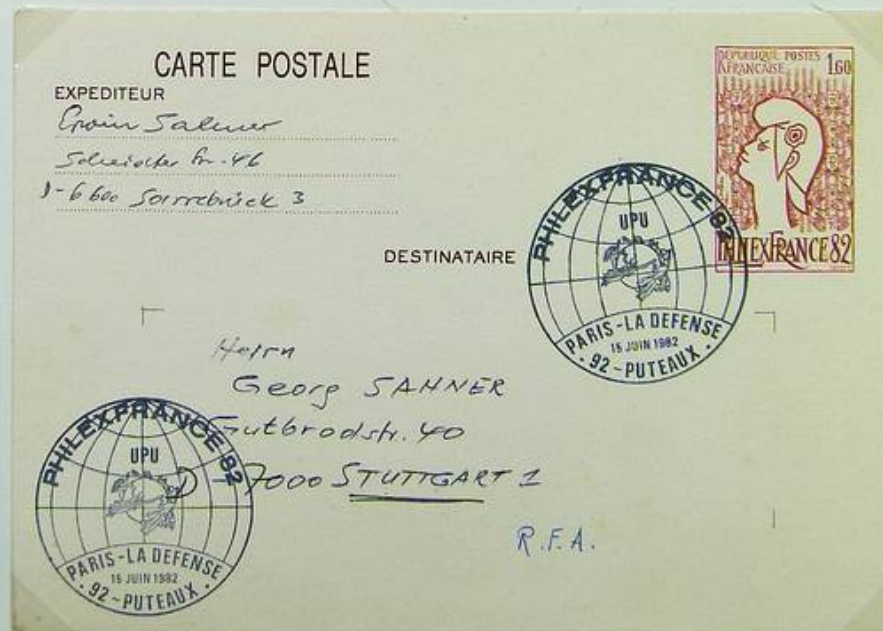 CARTE POSTALE
EXPEDITEUR
Erwin Sahner
Scheidter Str. 46
D-6600 Saarebrück 3
REPUBLIQUE POSTES 1.60
FRANCAISE
PHILEXFRANCE 82
PHILEXFRANCE 82
UPU
PARIS-LA DEFENSE
15 JUIN 1982
92-PUTEAUX
DESTINATAIRE
Herrn
Georg SAHNER
Gutbrodstr. 40
D-7000 STUTTGART 1
R.F.A.
PHILEXFRANCE 82
UPU
PARIS-LA DEFENSE
15 JUIN 1982
92-PUTEAUX